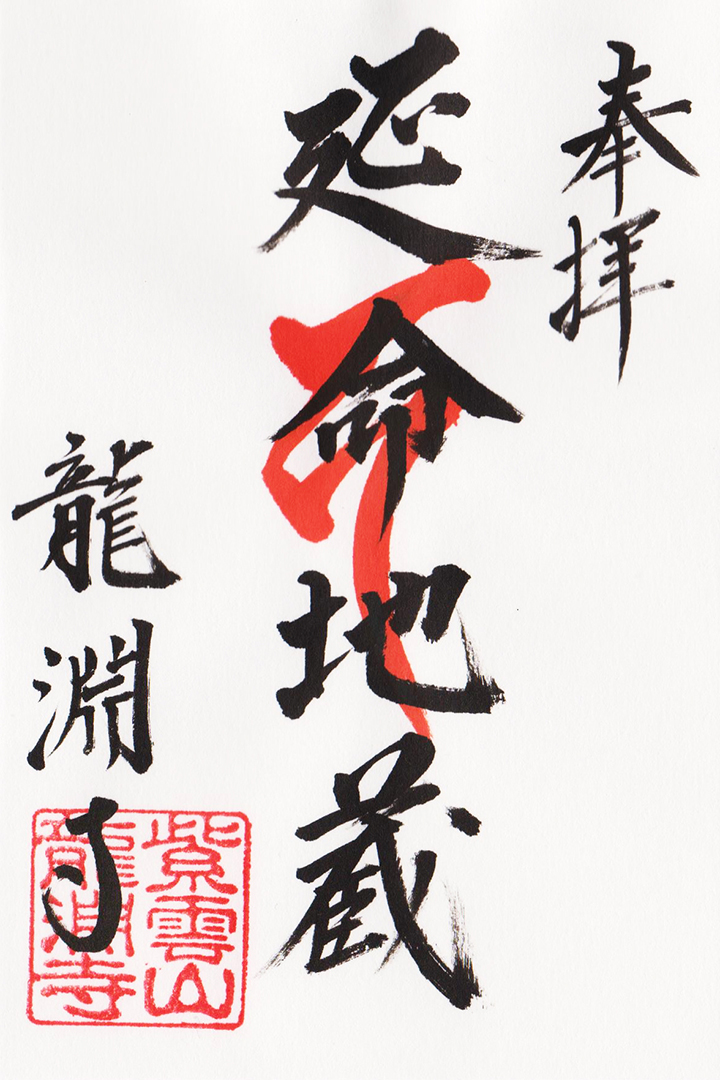 奉拝
延命地蔵
龍淵寺
紫雲山
龍淵寺